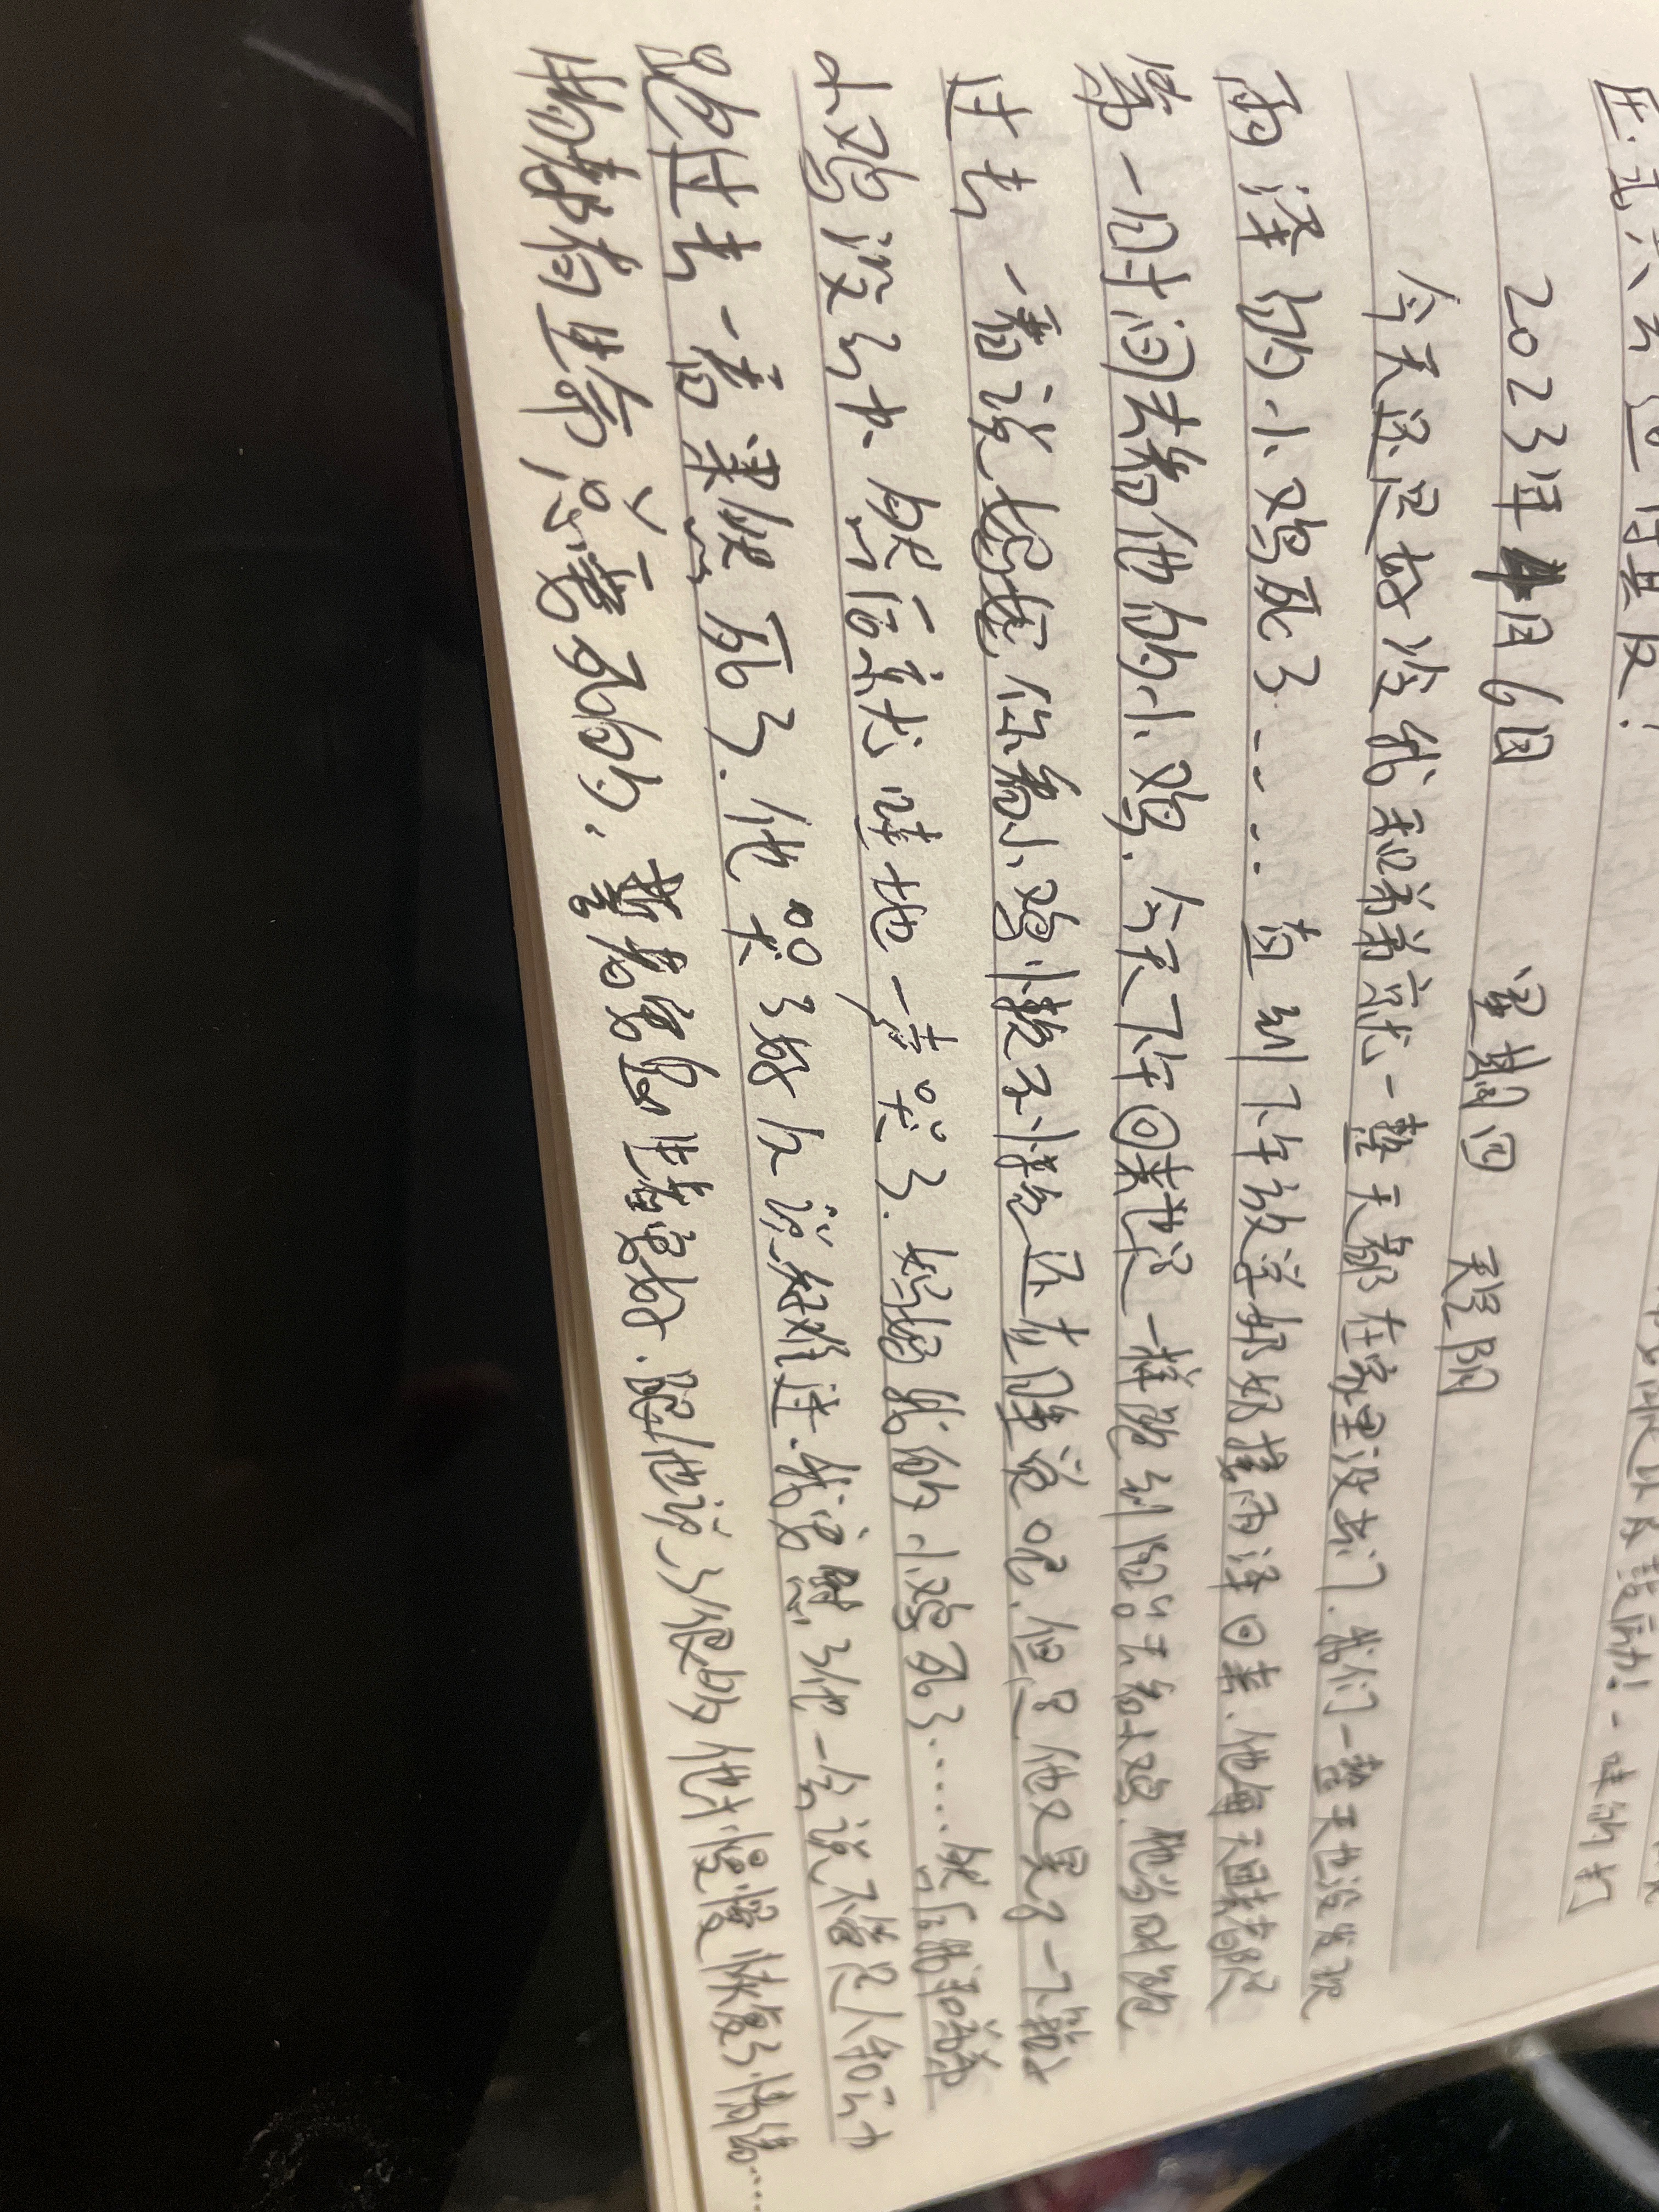 2023年4月6日 星期四 天气阴
今天还是好冷我和弟弟就一整天都在家里没出门.我们一整天也没发现
雨泽的小鸡死了......直到下午放学奶奶接雨泽回来.他每天回来都是
第一时间去看他的小鸡.今天下午回来也是一样跑到阳台去看小鸡.他当时跑
过去一看说妈妈你看小鸡懒不懒还在睡觉呢.但是他又晃了一下箱子
小鸡没动.然后就哇地一声哭了.妈妈我的小鸡死了......然后我和弟弟
跑过去一看果然死了.他哭了好久说好难过.我安慰了他一会说不管是人和动
物都有生命总要死的.
跟他说了很多他才慢慢恢复了情绪......